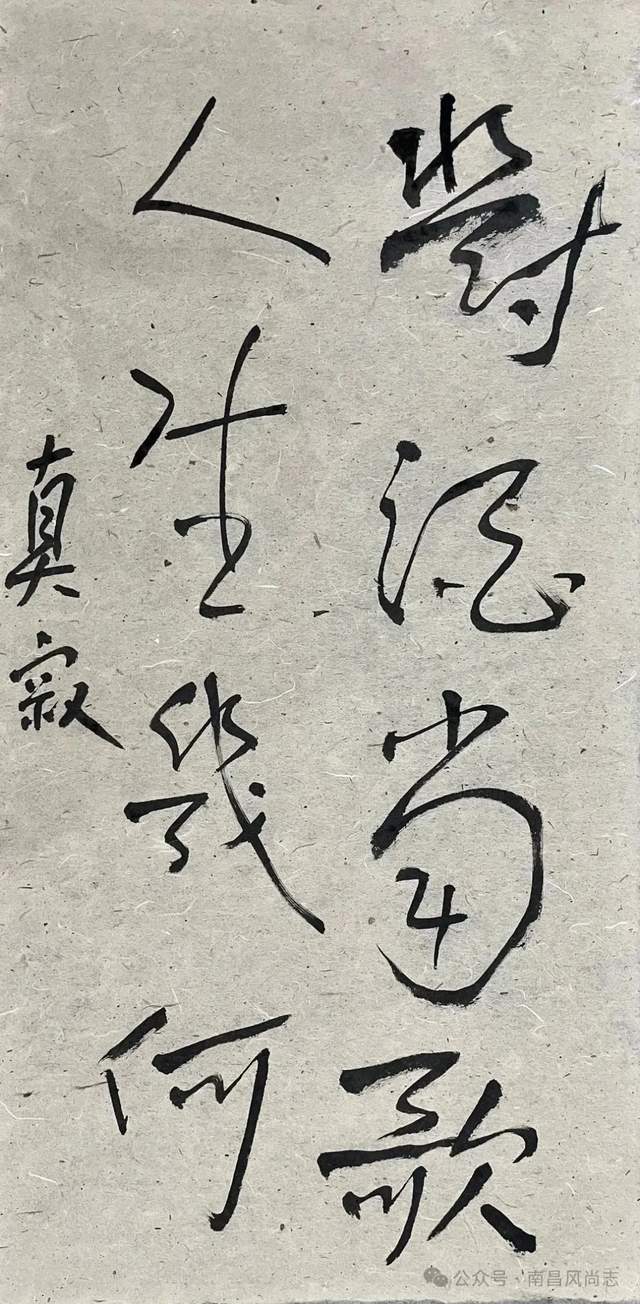 對酒當歌
人生幾何
真寂
公众号·南昌风尚志